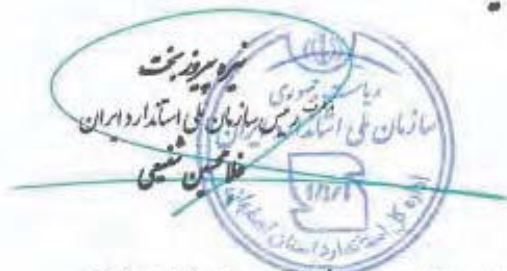 نیره پیروزبخت
از طرف رئیس سازمان ملی استاندارد ایران
غلامحسین شفیعی
ریاست جمهوری
سازمان ملی استاندارد ایران
اداره کل استاندارد استان اصفهان